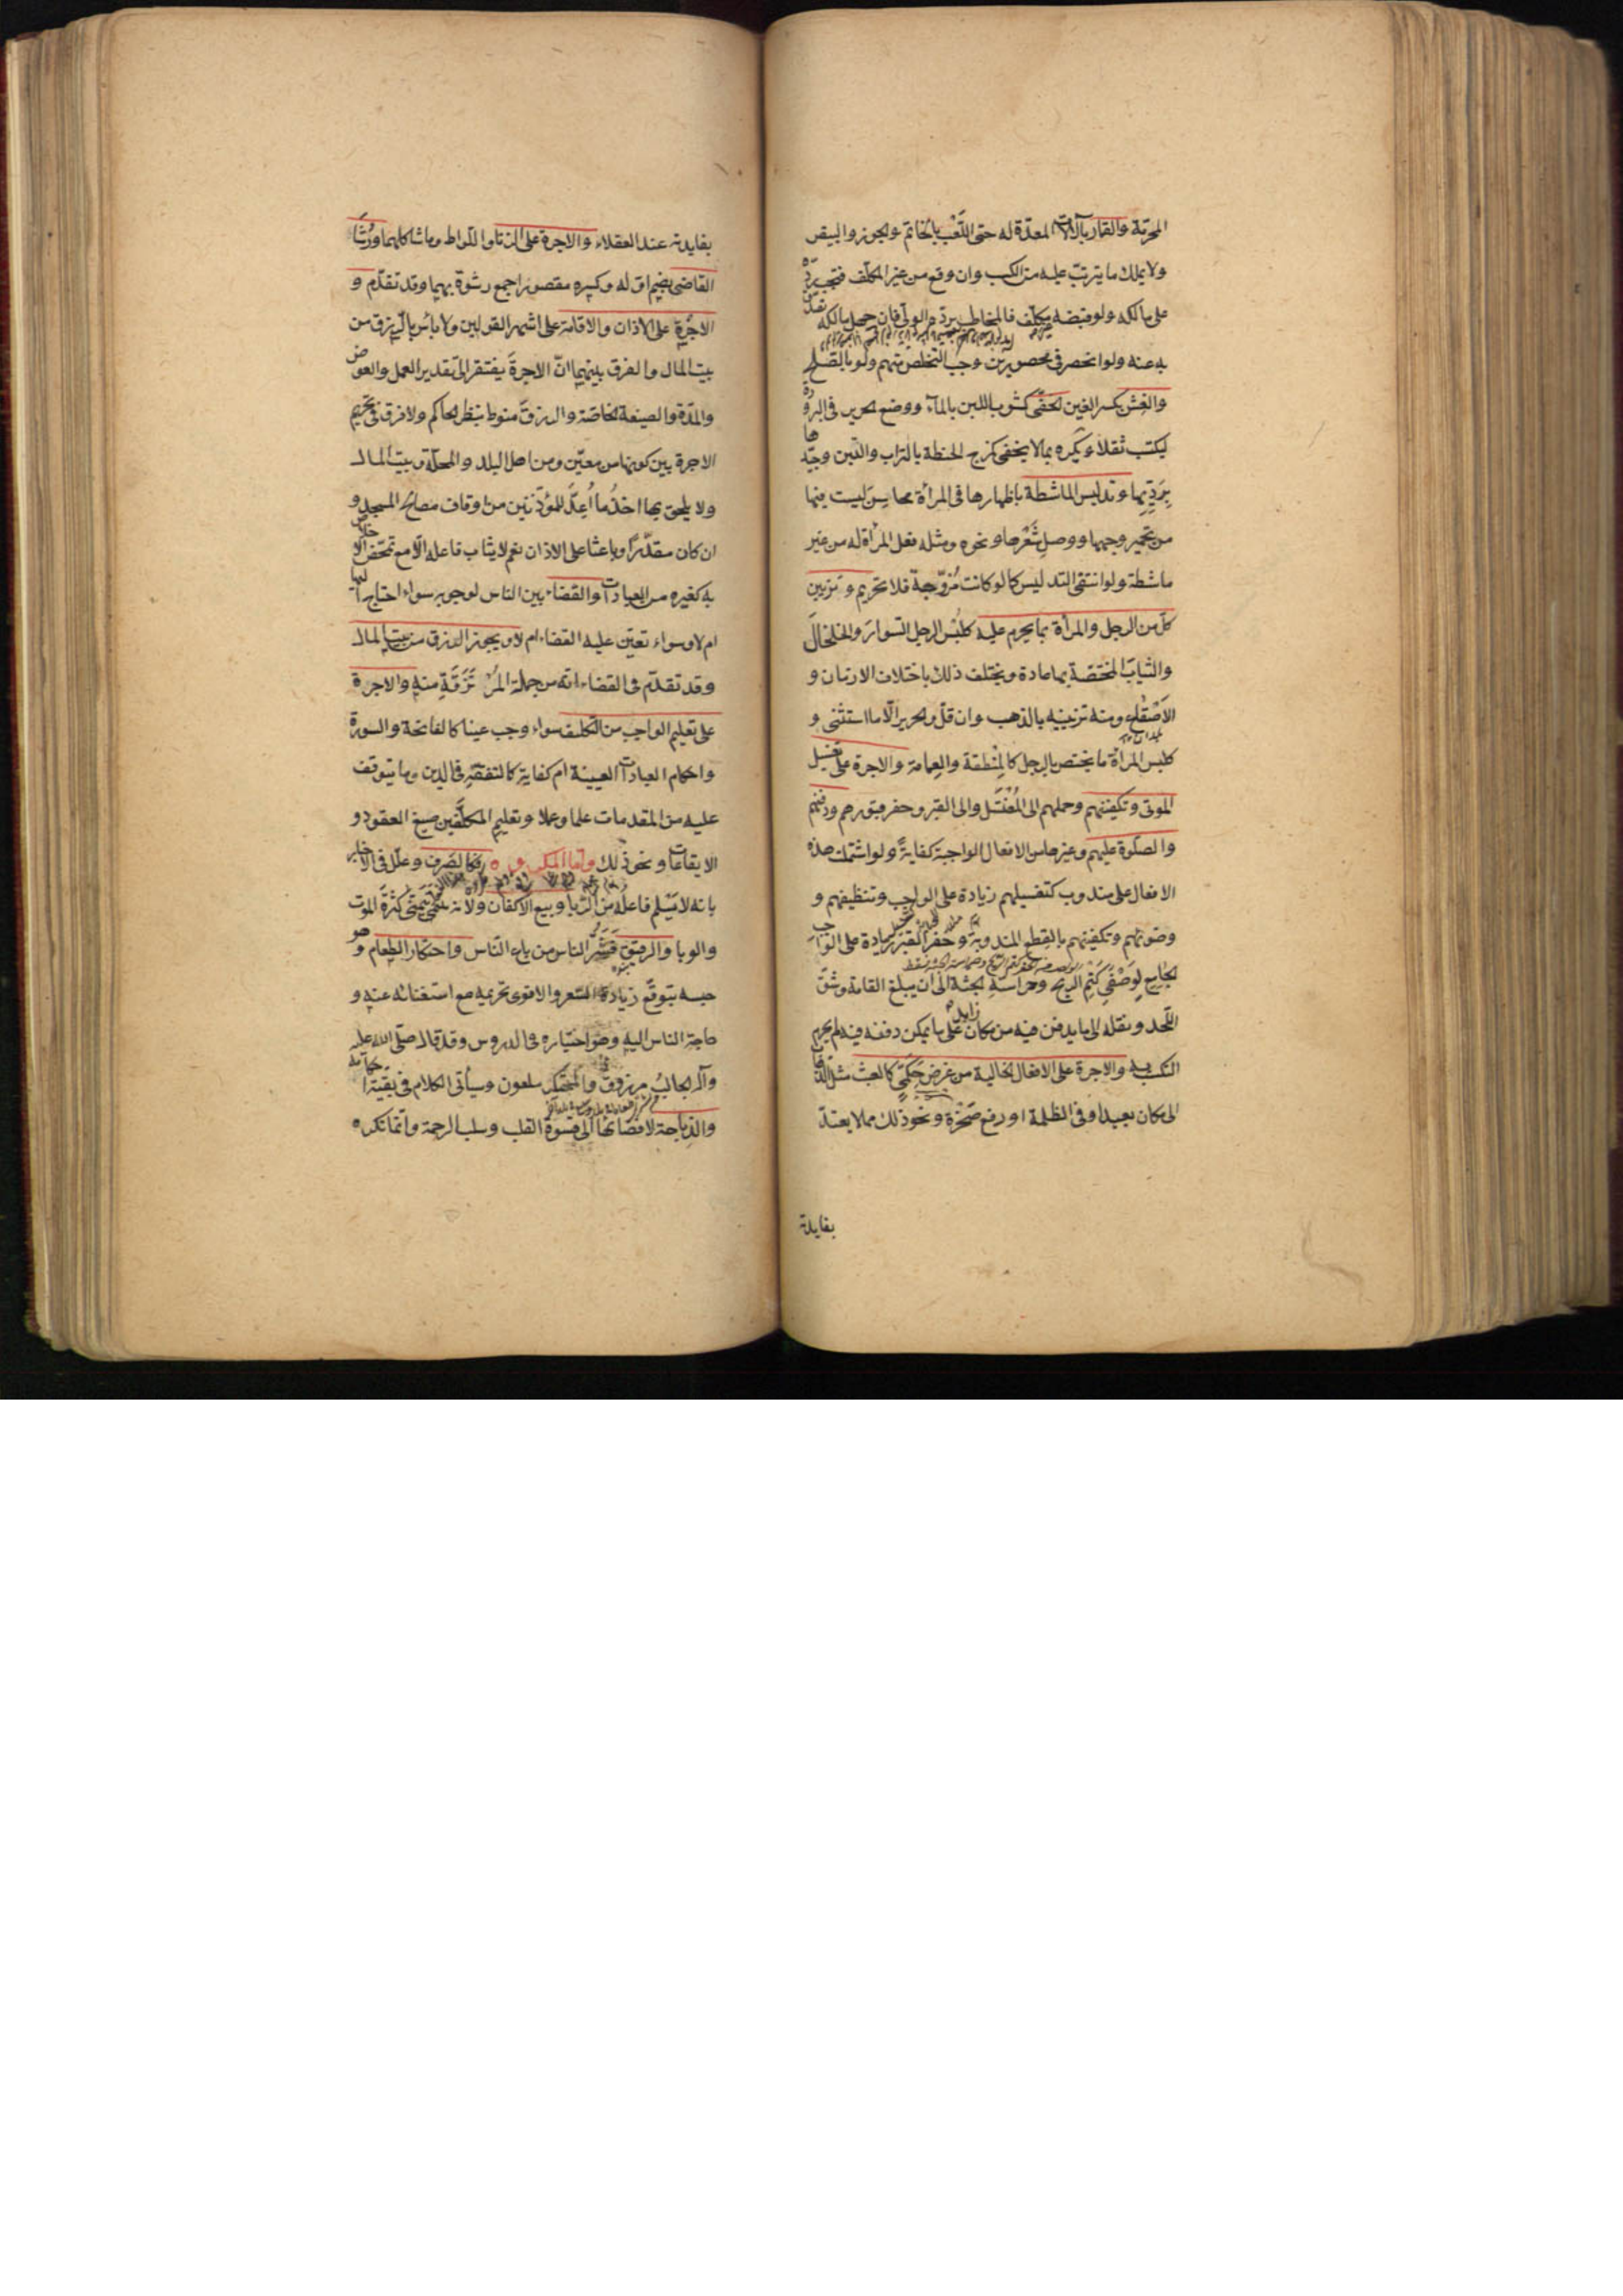 المحرمة والقمار بآلاته المعدّة له حتى اللَّعْب بالخاتم والجوز والبيض
ولا يملك ما يترتّب عليه من الكسب وان وقع من غير المكلّف فتجب ردّه
على مالكه ولو قبضه غير مكلّف فالمخاطب بردّه الولىّ فان جهل مالكه تصدّق
به عنه ولو انحصر فى محصورين وجب التخلّص منهم ولو بالصّلح
والغِشّ بكسر الغين الخفىّ كشوب اللبن بالمآء ووضع الحرير فى البرودة
ليكتسب ثقلا ويكره بما لا يخفى كمزج الحنطة بالتراب والتبن وجيّدها
بِرَدِيِّها وتدليس الماشطة باظهارها فى المرأة محاسِنَ ليست فيها
من تحمير وجهها ووصل شَعْرها ونحوه ومثله فعل المرأة له من غير
ماشطة ولو انتفى التدليس كما لو كانت مُزوَّجة فلا تحريم وتزيين
كلّ من الرجل والمرأة بما يحرم عليه كلبْس الرجل السوارَ والخلخالَ
والثيابَ المختصّة بها عادة ويختلف ذلك باختلاف الازمان و
الاَصْقاع ومنه تزيينه بالذهب وان قلّ والحرير الّا ما استثنى و
كلبس المرأة ما يختص بالرجل كالمِنْطقة والعِمامة والاجرة على تغسيل
الموتى وتكفينهم وحملهم الى المُغْتَسَل والى القبر وحفر قبورهم ودفنهم
والصلوة عليهم وغيرها من الافعال الواجبة كفايةً ولو اشتملت هذه
الافعال على مندوب كتغسيلهم زيادة على الواجب وتنظيفهم و
وضوئهم وتكفينهم بالقِطع المندوبة وحَفْر القبر زيادة على الواجب
الجامع لوَصْفَىْ كَتْم الريح وحراسةِ الجثة الى ان يبلغ القامة وشقّ
اللّحد ونقله الى ما يدفن فيه من مكان زايد على ما يمكن دفنه فيه لم يحرم
التكسّب به والاجرة على الافعال الخالية من غرضٍ حِكَمىّ كالعبث مثل الذهاب
الى مكان بعيد او فى الظلمة او رفع صَخْرة ونحو ذلك مما لا يعتدّ
بفايدة
بفايدته عند العقلاء والاجرة على الزنا واللّواط وما شاكلهما ورُشَا
القاضى بضم اوّله وكسره مقصورا جمع رشوة بهما وقد تقدّم و
الاجْرة على الاذان والاقامة على اشهر القولين ولا بأس بالرّزق من
بيت المال والفرق بينهما انّ الاجرةَ يفتقر الى تقدير العمل والعوض
والمدّة والصيغة الخاصّة والرزقَ منوط بنظر الحاكم ولا فرق فى تحريم
الاجرة بين كونها من معيّن ومن اهل البلد والمحلّة وبيت المال
ولا يلحق بها اخذُ ما اُعِدَّ للمؤذّنين من اوقاف مصالح المسجد و
ان كان مقدّرًا وباعثا على الاذان نعم لا يثاب فاعله الّا مع تمحّض الاخلاص
به كغيره من العبادات والقضاء بين الناس لوجوبه سواء احتاج اليها
ام لا وسواء تعيّن عليه القضاء ام لا ويجوز الرزق من بيت المال
وقد تقدّم فى القضاء انه من جملة المُرْتَزَقَةِ منه والاجرة
على تعليم الواجب من التكليف سواء وجب عينا كالفاتحة والسورة
واحكام العبادات العينية ام كفاية كالتفقّه فى الدين وما يتوقف
عليه من المقدمات علما وعملا وتعليم المكلّفين صيغ العقود و
الايقاعات ونحو ذلك وامّا المكروه فكالصَرف وعلّل فى الاخبار
بانه لا يَسْلم فاعلُه من الرّبا وبيع الاكفان ولانه يتمنّى كَثْرةَ الموت
والوبا والرقيق فَشَرُّ الناس من باع النّاس واحتكار الطعام وهو
حبسه بتوقّع زيادة السّعر والاقوى تحريمه مع استغنائه عنه و
حاجة الناس اليه وهو اختياره فى الدروس وقد قال صلّى الله عليه
وآله الجالبُ مرزوق والمحتكر ملعون وسيأتى الكلام فى بقيّة احكامه
والذِباحة لافضائها الى قسوة القلب وسلب الرحمة وانّما تكره